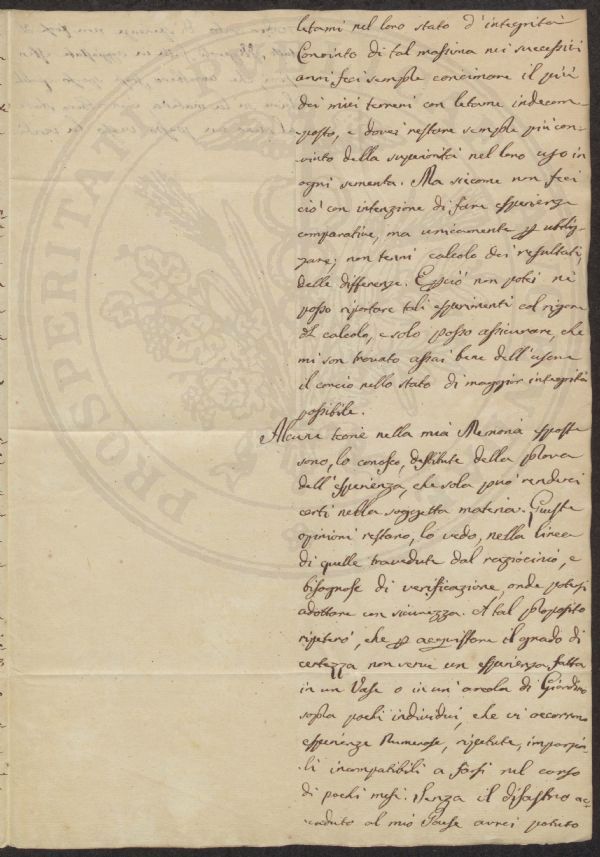 letami nel loro stato d'integrità
Convinto di tal massima nei successivi
anni feci sempre concimare il più
dei miei terreni con letame indecom=
posto, e dovei restare sempre più con=
vinto della superiorità nel loro uso in
ogni sementa. Ma siccome non feci
ciò con intenzione di fare esperienze
comparative, ma unicamente p utiliz=
zare; non tenni calcolo dei resultati,
delle differenze. E pciò non potei nè
posso riportare tali esperimenti col rigore
del calcolo, e solo posso assicurare, che
mi son trovato assai bene dell'usare
il concio nello stato di maggior integrità
possibile.
Alcune teorie nella mia Memoria esposte
sono, lo conosco, destitute della prova
dell'esperienza, che sola può renderci
certi nella soggetta materia. Queste
opinioni restano, lo vedo, nella linea
di quelle travedute dal raziocinio, e
bisognose di verificazione, onde potersi
adottare con sicurezza. A tal proposito
ripeterò, che p acquistare il grado di
certezza non serve un esperienza fatta
in un Vaso o in un'areola di Giardino
sopra pochi individui, che vi occorrono
esperienze numerose, ripetute, imparzia=
li incompatibili a farsi nel corso
di pochi mesi. Senza il disastro ac=
caduto al mio Paese avrei potuto
PROSPERITATI